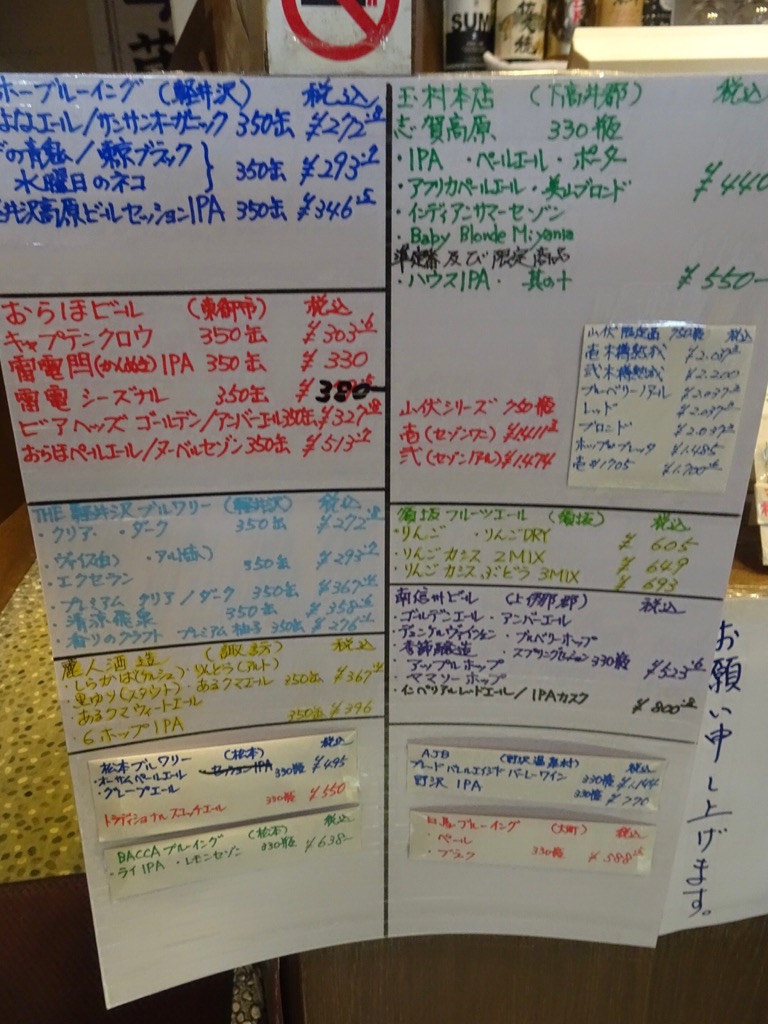 SUM
ホーブルーイング (軽井沢) 税込
よなエール/サンサンオーガニック 350缶 ¥272
の青鬼/東京ブラック
水曜日のネコ 350缶 ¥293
井沢高原ビールセッションIPA 350缶 ¥346
おらほビール (東御市) 税込
キャプテンクロウ 350缶 ¥303
雷電閂(かんぬき)IPA 350缶 ¥330
雷電 シーズナル 350缶 ¥380-
ビアヘッズ ゴールデン/アンバーエール350缶 ¥327
おらほペールエール/ヌーベルセゾン 350缶 ¥513
THE 軽井沢ブルワリー (軽井沢) 税込
・クリア・ダーク 350缶 ¥272
・ヴァイス(白)・アルト(赤) 350缶 ¥293
・エクセラン
・プレミアム クリア/ダーク 350缶 ¥367
・清涼飛泉 350缶 ¥358
・香りのクラフト プレミアム柚子 350缶 ¥276
麗人酒造 (諏訪) 税込
・しらかば(ケルシュ)・りんどう(アルト)
・黒ゆり(スタウト)・あるクマエール 350缶 ¥367
・あるクマウィートエール
・6ホップIPA 350缶 ¥396
松本ブルワリー (松本) 税込
・オーサムペールエール セッションIPA 330瓶 ¥495
・グレープエール
トラディショナルスコッチエール 330瓶 ¥550
BACCAブルーイング (松本) 税込
・ライIPA・レモンセゾン 330瓶 ¥638
玉村本店 (下高井郡) 税込
志賀高原 330瓶
・IPA・ペールエール・ポーター
・アフリカペールエール・美山ブロンド ¥440
・インディアンサマーセゾン
・Baby Blonde Miyama
準定番及び限定商品
・ハウスIPA・其の十 ¥550-
山伏シリーズ 750瓶
壱(セゾンワン) ¥1,411
弐(セゾンノアル) ¥1,474
山伏限定品 750瓶 税込
壱木樽熟成 ¥2.037
弐木樽熟成 ¥2.200
ブルーベリー/アル ¥2.037
レッド ¥2.037
ブロンド ¥2.037
ホップのブレット ¥1.485
壱#1705 ¥1.700
須坂フルーツエール (須坂) 税込
・りんご・りんごDRY ¥605
・りんごカシス 2MIX ¥649
・りんごカシスぶどう 3MIX ¥693
南信州ビール (上伊那郡) 税込
・ゴールデンエール・アンバーエール
・デュンケルヴァイツェン・ブルベリーホップ
季節醸造・スプリングセッション 330瓶
・アップルホップ ¥523
・ヤマソーホップ
・インペリアルレッドエール/IPAカスク ¥800
AJB (野沢温泉村) 税込
ブレードバレルエイジド バーレーワイン 330瓶 ¥1,144
野沢IPA 330瓶 ¥770
白馬ブルーイング (大町) 税込
・ペール
・ブラック 330瓶 ¥588
お願い申し上げます。